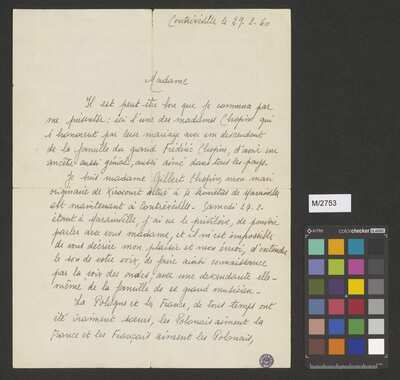 Contrexéville le 29.2.60
Madame
Il est peut-être bon que je commence par
me présenter: ici l'une des madames Chopin qui
s'honorent par leur mariage avec un descendant
de la famille du grand Frédéric Chopin, d'avoir un
ancêtre aussi génial, aussi aimé dans tous les pays.
Je suis madame Gilbert Chopin, mon mari
originaire de Xirocourt situé à kilomètres de Marainville
est maintenant à Contrexéville. Samedi 27.2.
étant à Marainville j'ai eu le privilège, de pouvoir
parler avec vous madame, et il m'est impossible
de vous décrire mon plaisir et mon émoi, d'entendre
le son de votre voix, de faire ainsi connaissance
par la voix des ondes, avec une descendante elle-
même de la famille de ce grand musicien.
La Pologne et la France, de tous temps ont
été vraiment soeurs, les Polonais aiment la
France et les Français aiment les Polonais,
M/2753
colorchecker